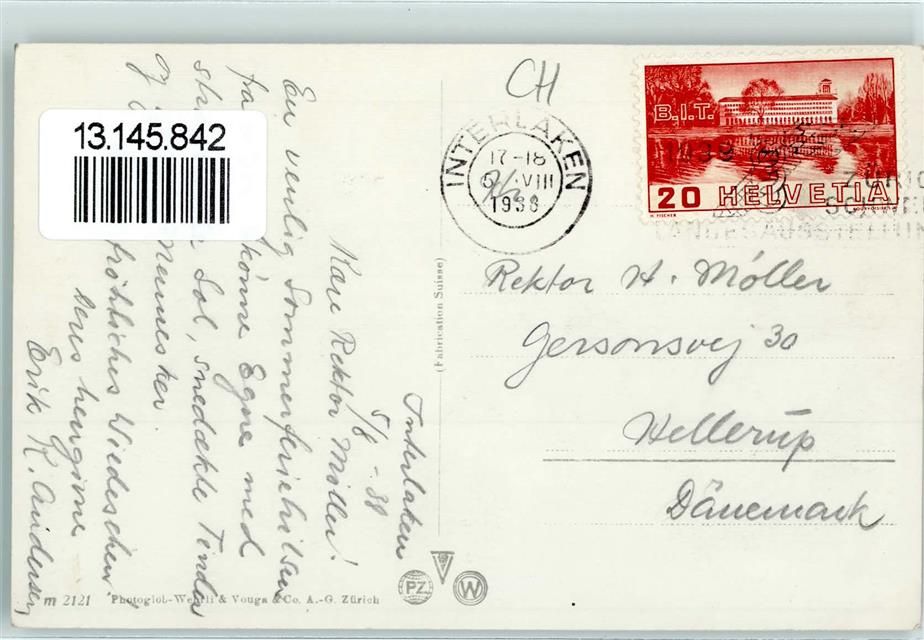 CH
INTERLAKEN
17-18
VIII
1938
B.I.T.
20 HELVETIA
H. FISCHER
LANDESAUSSTELLUNG
13.145.842
Interlaken
5/8 - 38
Kære Rektor Møller!
En venlig Sommerferiehilsen
fra
skønne Egne med
Sol, snedækte Tinder
og
Mennesker.
fröhliches Wiedersehen
Deres hengivne
Erik K. Andersen
(Fabrication Suisse)
Rektor H. Møller
Gersonsvej 30
Hellerup
Dänemark
m 2121 Photoglob-Wehrli & Vouga & Co. A.-G. Zürich
PZ
V
W